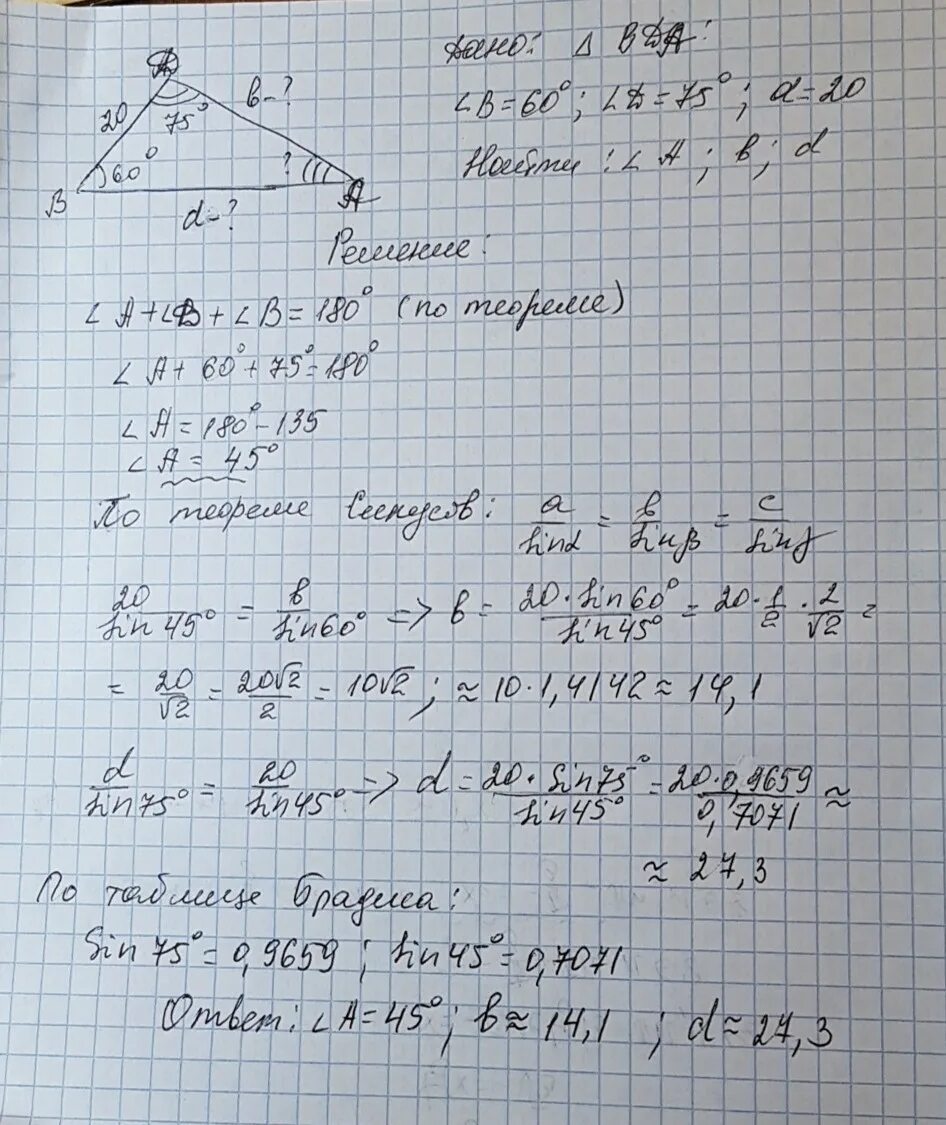 Дано: Δ BDA:
∠B = 60°; ∠D = 75°; a = 20
Найти: ∠A; b; d
D
20
75°
b - ?
60°
?
B
A
d - ?
Решение:
∠A + ∠D + ∠B = 180° (по теореме)
∠A + 60° + 75° = 180°
∠A = 180° - 135
∠A = 45°
По теореме синусов: a/sinα = b/sinβ = c/sinγ
20/sin45° = b/sin60° => b = 20·sin60°/sin45° = 20·1/2·2/√2 =
= 20/√2 = 20√2/2 = 10√2; ≈ 10·1,4142 ≈ 14,1
d/sin75° = 20/sin45° => d = 20·sin75°/sin45° = 20·0,9659/0,7071 ≈
≈ 27,3
По таблице Брадиса:
Sin75° = 0,9659; sin45° = 0,7071
Ответ: ∠A = 45°; b ≈ 14,1; d ≈ 27,3